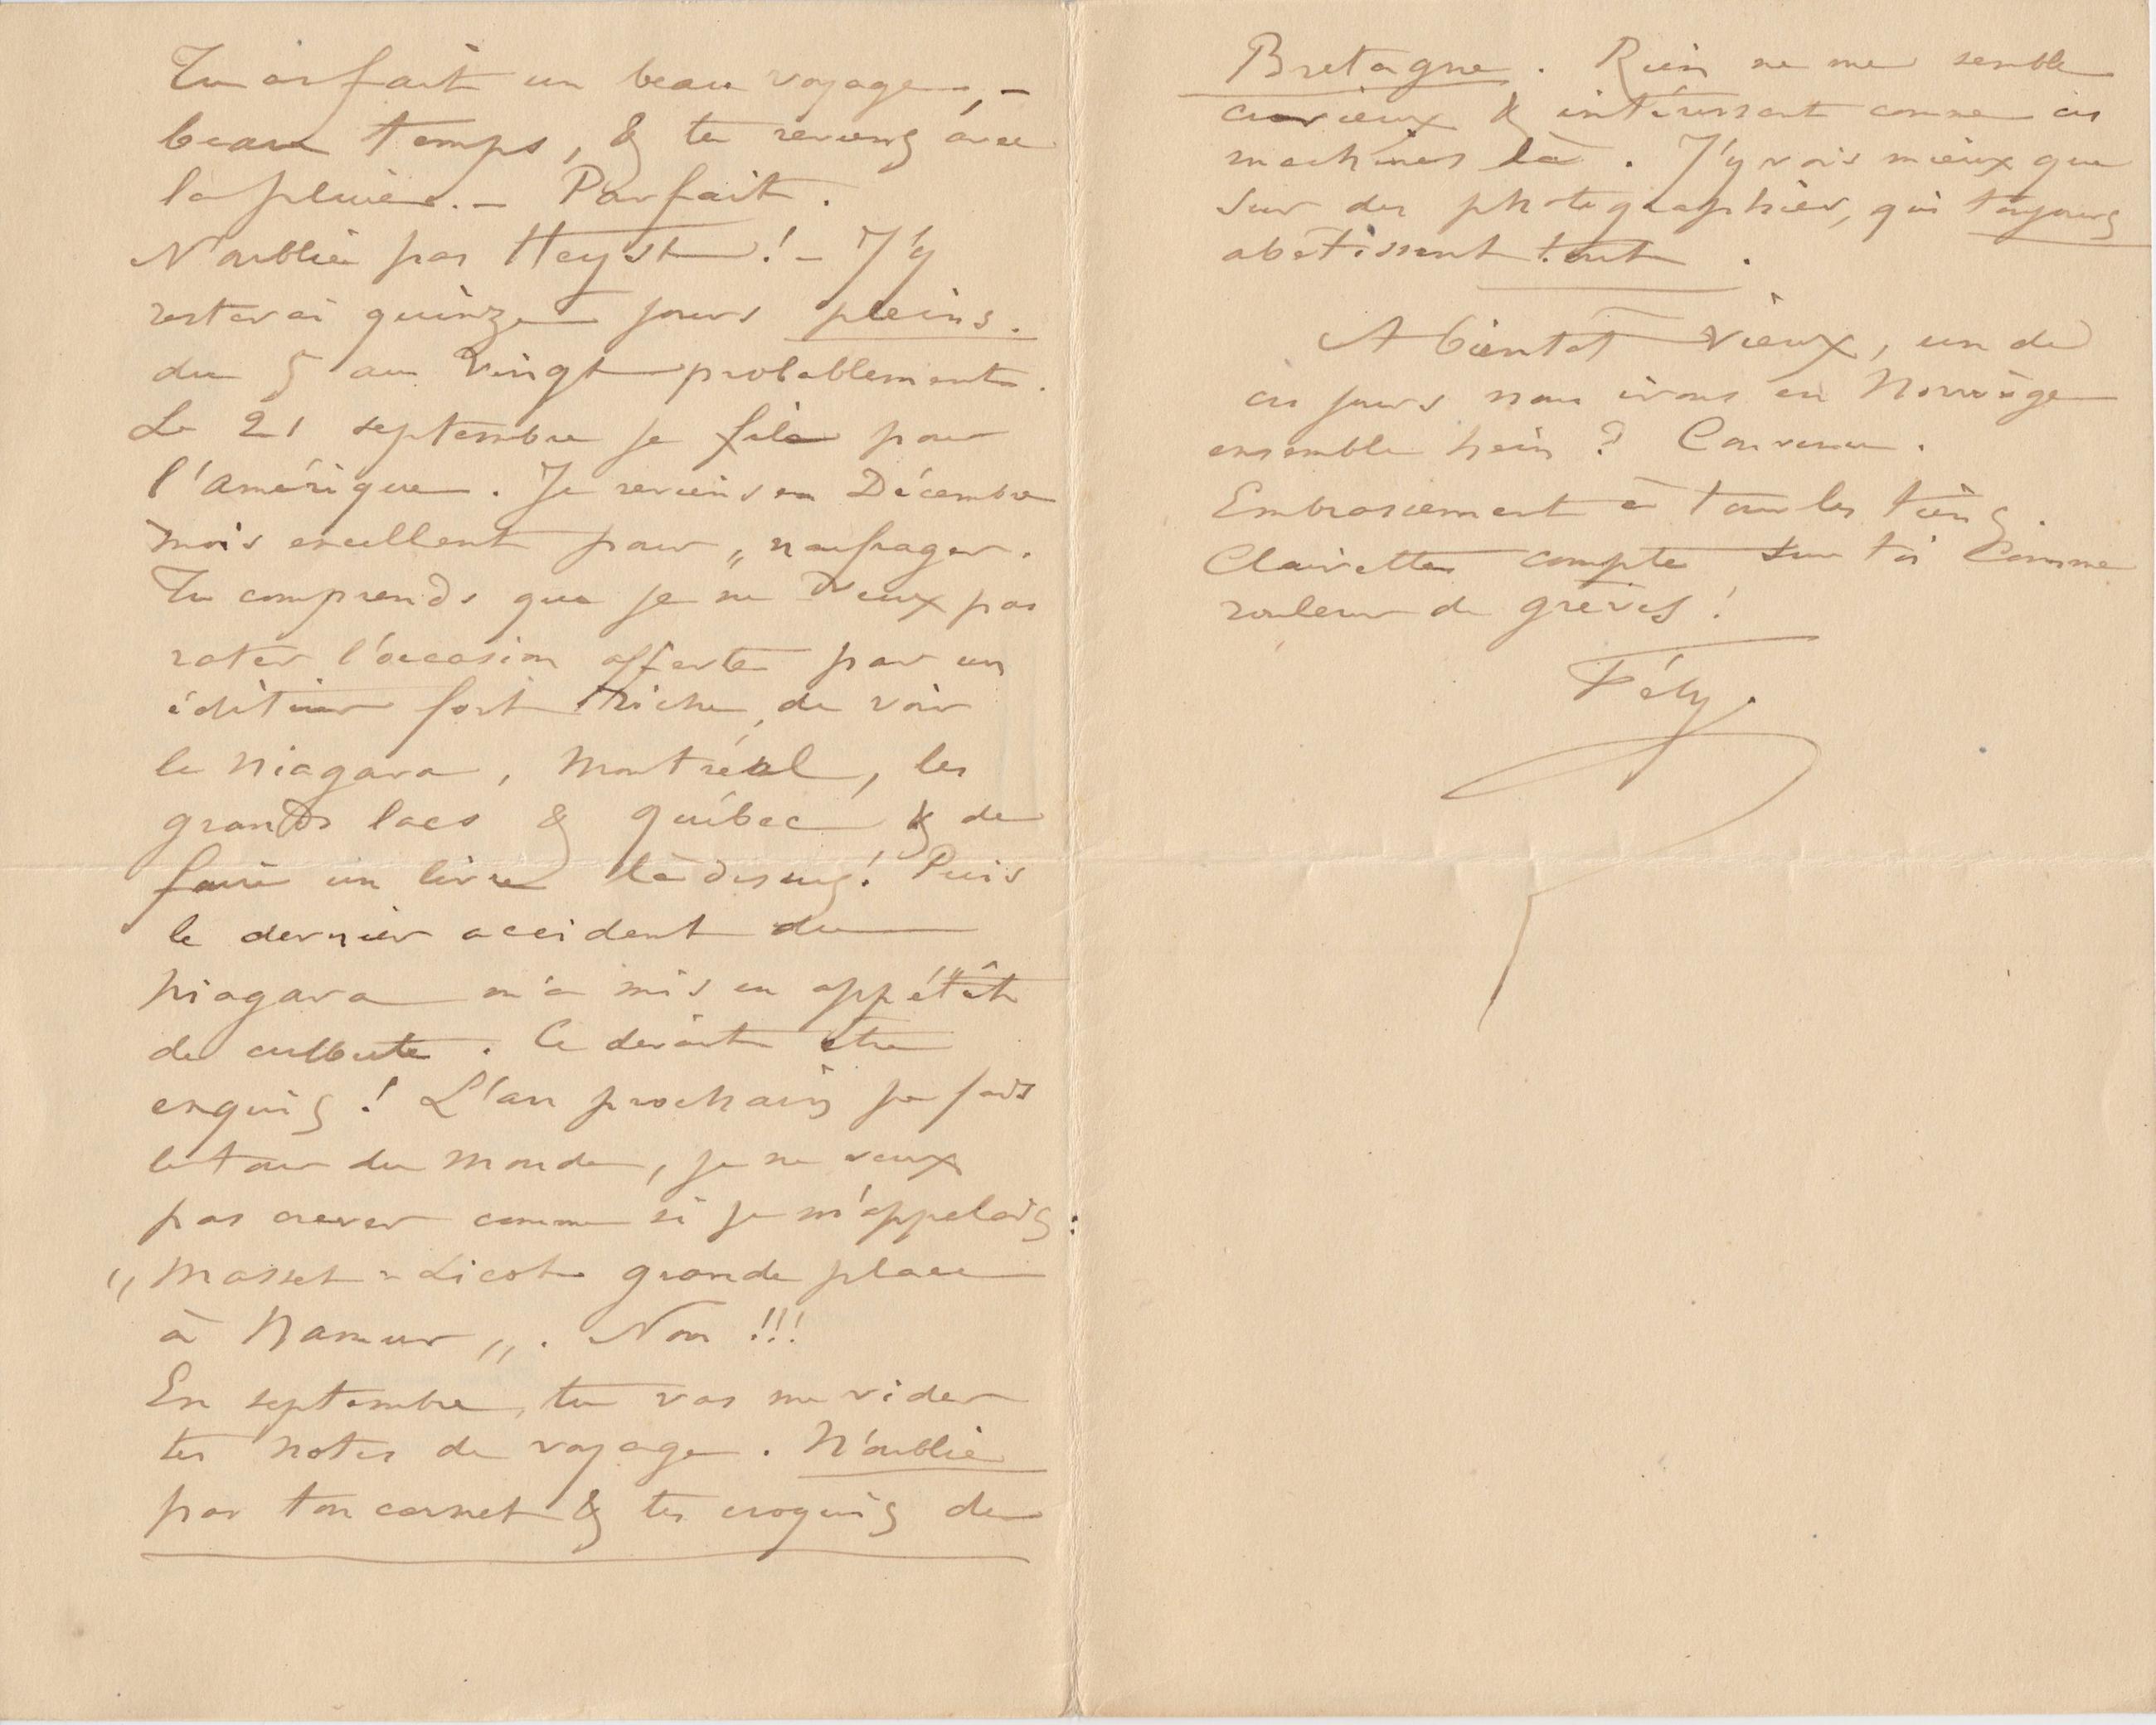 Tu as fait un beau voyage, –
beau temps, & tu reviens avec
la pluie. – Parfait.
N'oublie pas Heyst ! – J'y
resterai quinze jours pleins.
du 5 au vingt probablement.
Le 21 septembre je file pour
l'Amérique. Je reviens en Décembre
mois excellent pour „ naufrager.
Tu comprends que je ne veux pas
rater l'occasion offerte par un
éditeur fort riche, de voir
le Niagara, Montréal, les
grands lacs & Québec & de
faire un livre là dessus ! Puis
le dernier accident du
Niagara m'a mis en appétit
de culbute. Ce devait être
exquis ! L'an prochain je fais
le tour du monde, je ne veux
pas crever comme si je m'appelais :
„ Masset-Licot grande place
à Namur „. Non !!!
En septembre, tu vas me vider
tes notes de voyage. N'oublie
pas ton carnet & tes croquis de
Bretagne. Rien ne me semble
curieux & intéressant comme ces
machines là. J'y vois mieux que
sur des photographies, qui toujours
abêtissent tout.
A bientôt vieux, un de
ces jours nous irons en Norvège
ensemble hein ? Convenu.
Embrassement à tous les tiens.
Clairette compte sur toi comme
rouleur de grèves !
Fély.